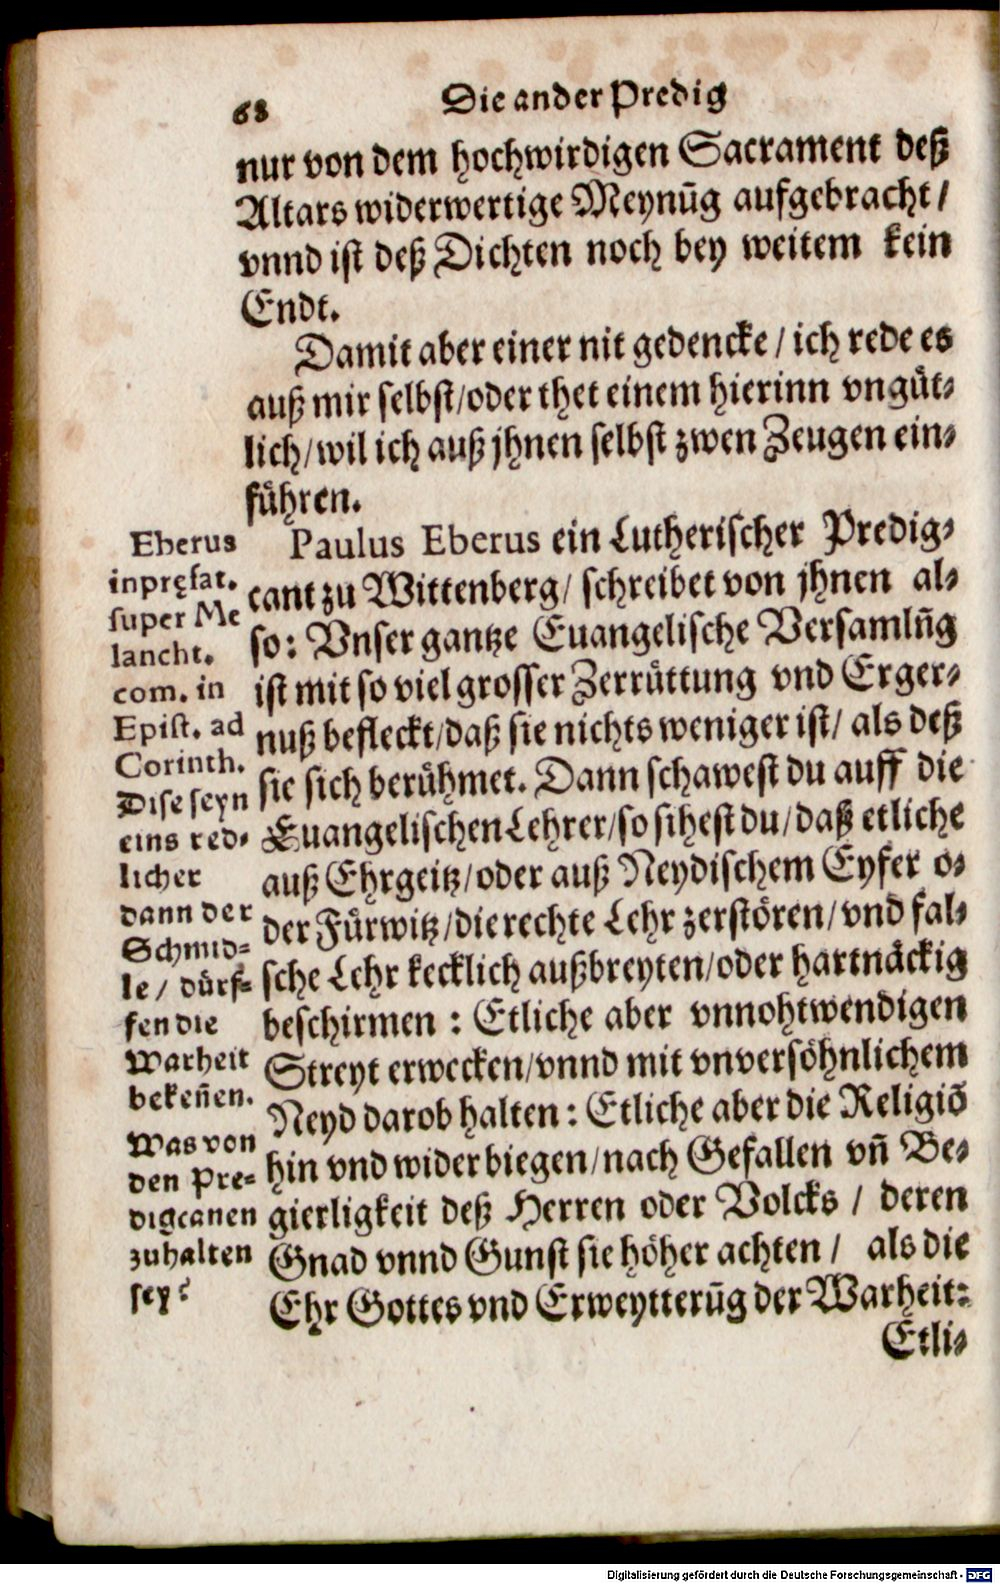 68 Die ander Predig
nur von dem hochwirdigen Sacrament deß
Altars widerwertige Meynūg aufgebracht /
vnnd ist deß Dichten noch bey weitem kein
Endt.
Damit aber einer nit gedencke / ich rede es
auß mir selbst / oder thet einem hierinn vngüt⸗
lich / wil ich auß jhnen selbst zwen Zeugen ein⸗
führen.
Paulus Eberus ein Lutherischer Predig⸗
cant zu Wittenberg / schreibet von jhnen al⸗
so: Vnser gantze Euangelische Versamlūg
ist mit so viel grosser Zerrüttung vnd Erger⸗
nuß befleckt / daß sie nichts weniger ist / als deß
sie sich berühmet. Dann schawest du auff die
Euangelischen Lehrer / so sihest du / daß etliche
auß Ehrgeitz / oder auß Neydischem Eyfer o⸗
der Fürwitz / die rechte Lehr zerstören / vnd fal⸗
sche Lehr kecklich außbreyten / oder hartnäckig
beschirmen : Etliche aber vnnohtwendigen
Streyt erwecken / vnnd mit vnversöhnlichem
Neyd darob halten : Etliche aber die Religiō
hin vnd wider biegen / nach Gefallen vñ Be⸗
gierligkeit deß Herren oder Volcks / deren
Gnad vnnd Gunst sie höher achten / als die
Ehr Gottes vnd Erweytterūg der Warheit:
Etli⸗
Eberus
in pręfat.
super Me
lancht.
com. in
Epist. ad
Corinth.
Dise seyn
eins red⸗
licher
dann der
Schmid⸗
le / dürf⸗
fen die
Warheit
bekeñen.
Was von
den Pre⸗
digcanen
zuhalten
sey?
Digitalisierung gefördert durch die Deutsche Forschungsgemeinschaft - DFG